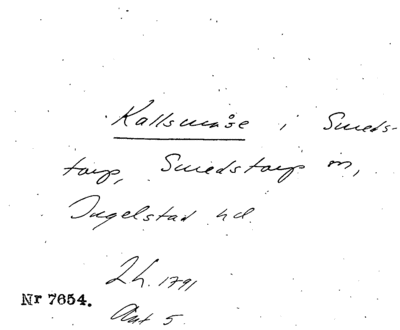 Kallsmåse i Smeds-
torp, Smedstorp sn,
Ingelstad hd.
Lh. 1791
Nr 7654.
Akt 5